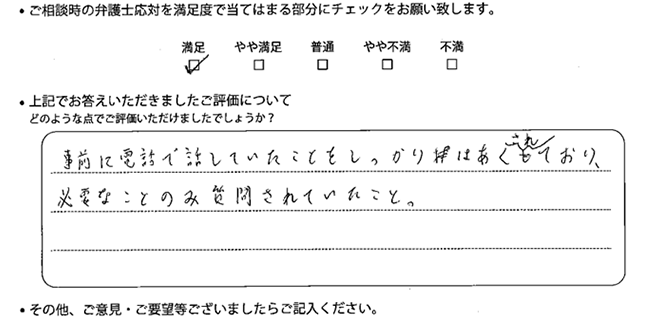 • ご相談時の弁護士応対を満足度で当てはまる部分にチェックをお願い致します。
満足 やや満足 普通 やや不満 不満
• 上記でお答えいただきましたご評価について
どのような点でご評価いただけましたでしょうか？
事前に電話で話していたことをしっかり はあくされており、
必要なことのみ質問されていたこと。
• その他、ご意見・ご要望等ございましたらご記入ください。